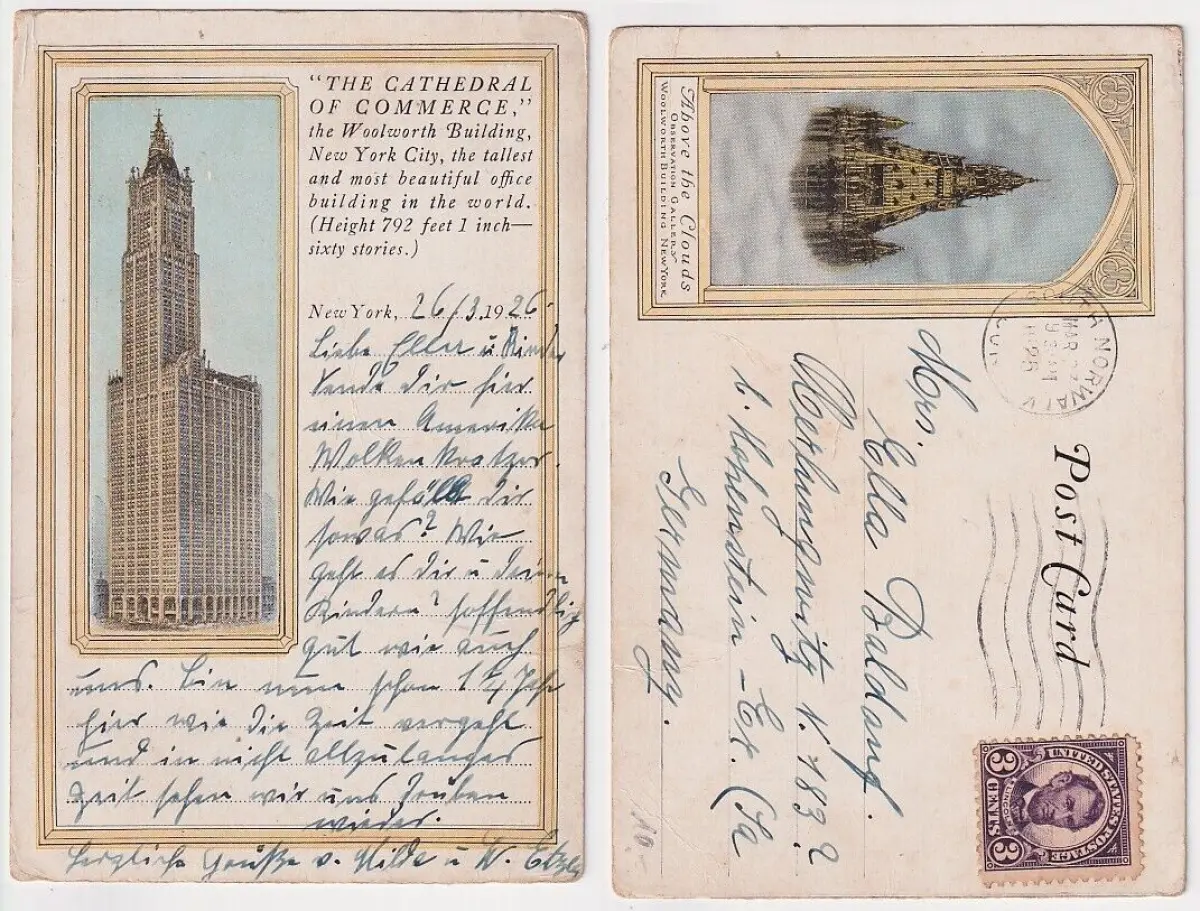 "THE CATHEDRAL
OF COMMERCE,"
the Woolworth Building,
New York City, the tallest
and most beautiful office
building in the world.
(Height 792 feet 1 inch—
sixty stories.)
New York, 26/3.1926.
Liebe Ella u Kinder
Sende dir hier
einen Amerika
Wolkenkratzer.
Wie gefällt dir
sowas? Wie
geht es dir u deinen
Kindern? hoffendlig
gut wie auch
uns. Bin nun schon 1 1/4 Jahr
hier wie die Zeit vergeht
und in nicht allzulanger
Zeit sehen wir uns drüben
wieder.
Herzliche Grüße v. Hilde u W.
Above the Clouds
OBSERVATION GALLERY
WOOLWORTH BUILDING NEW YORK
SOUTH NORWALK
CONN
MAR
Post Card
UNITED STATES POSTAGE
LINCOLN
3 CENTS 3
Mrs.
Ella Baldauf
N. 183
b. Hohenstein-Er. (Sa
Germany.
10.-